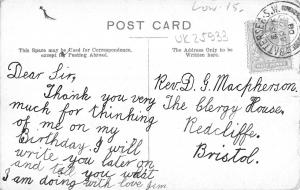 Cow. 15.
POST CARD
UK 25933
This Space may be Used for Correspondence,
except for Posting Abroad.
The Address Only to be
Written Here.
Dear Sir,
Thank you very
much for thinking
of me on my
Birthday. I will
write you later on
and tell you wat
I am doing with love Jim.
Rev. D. G. Macpherson.
The Clergy House,
Redcliffe.
Bristol.